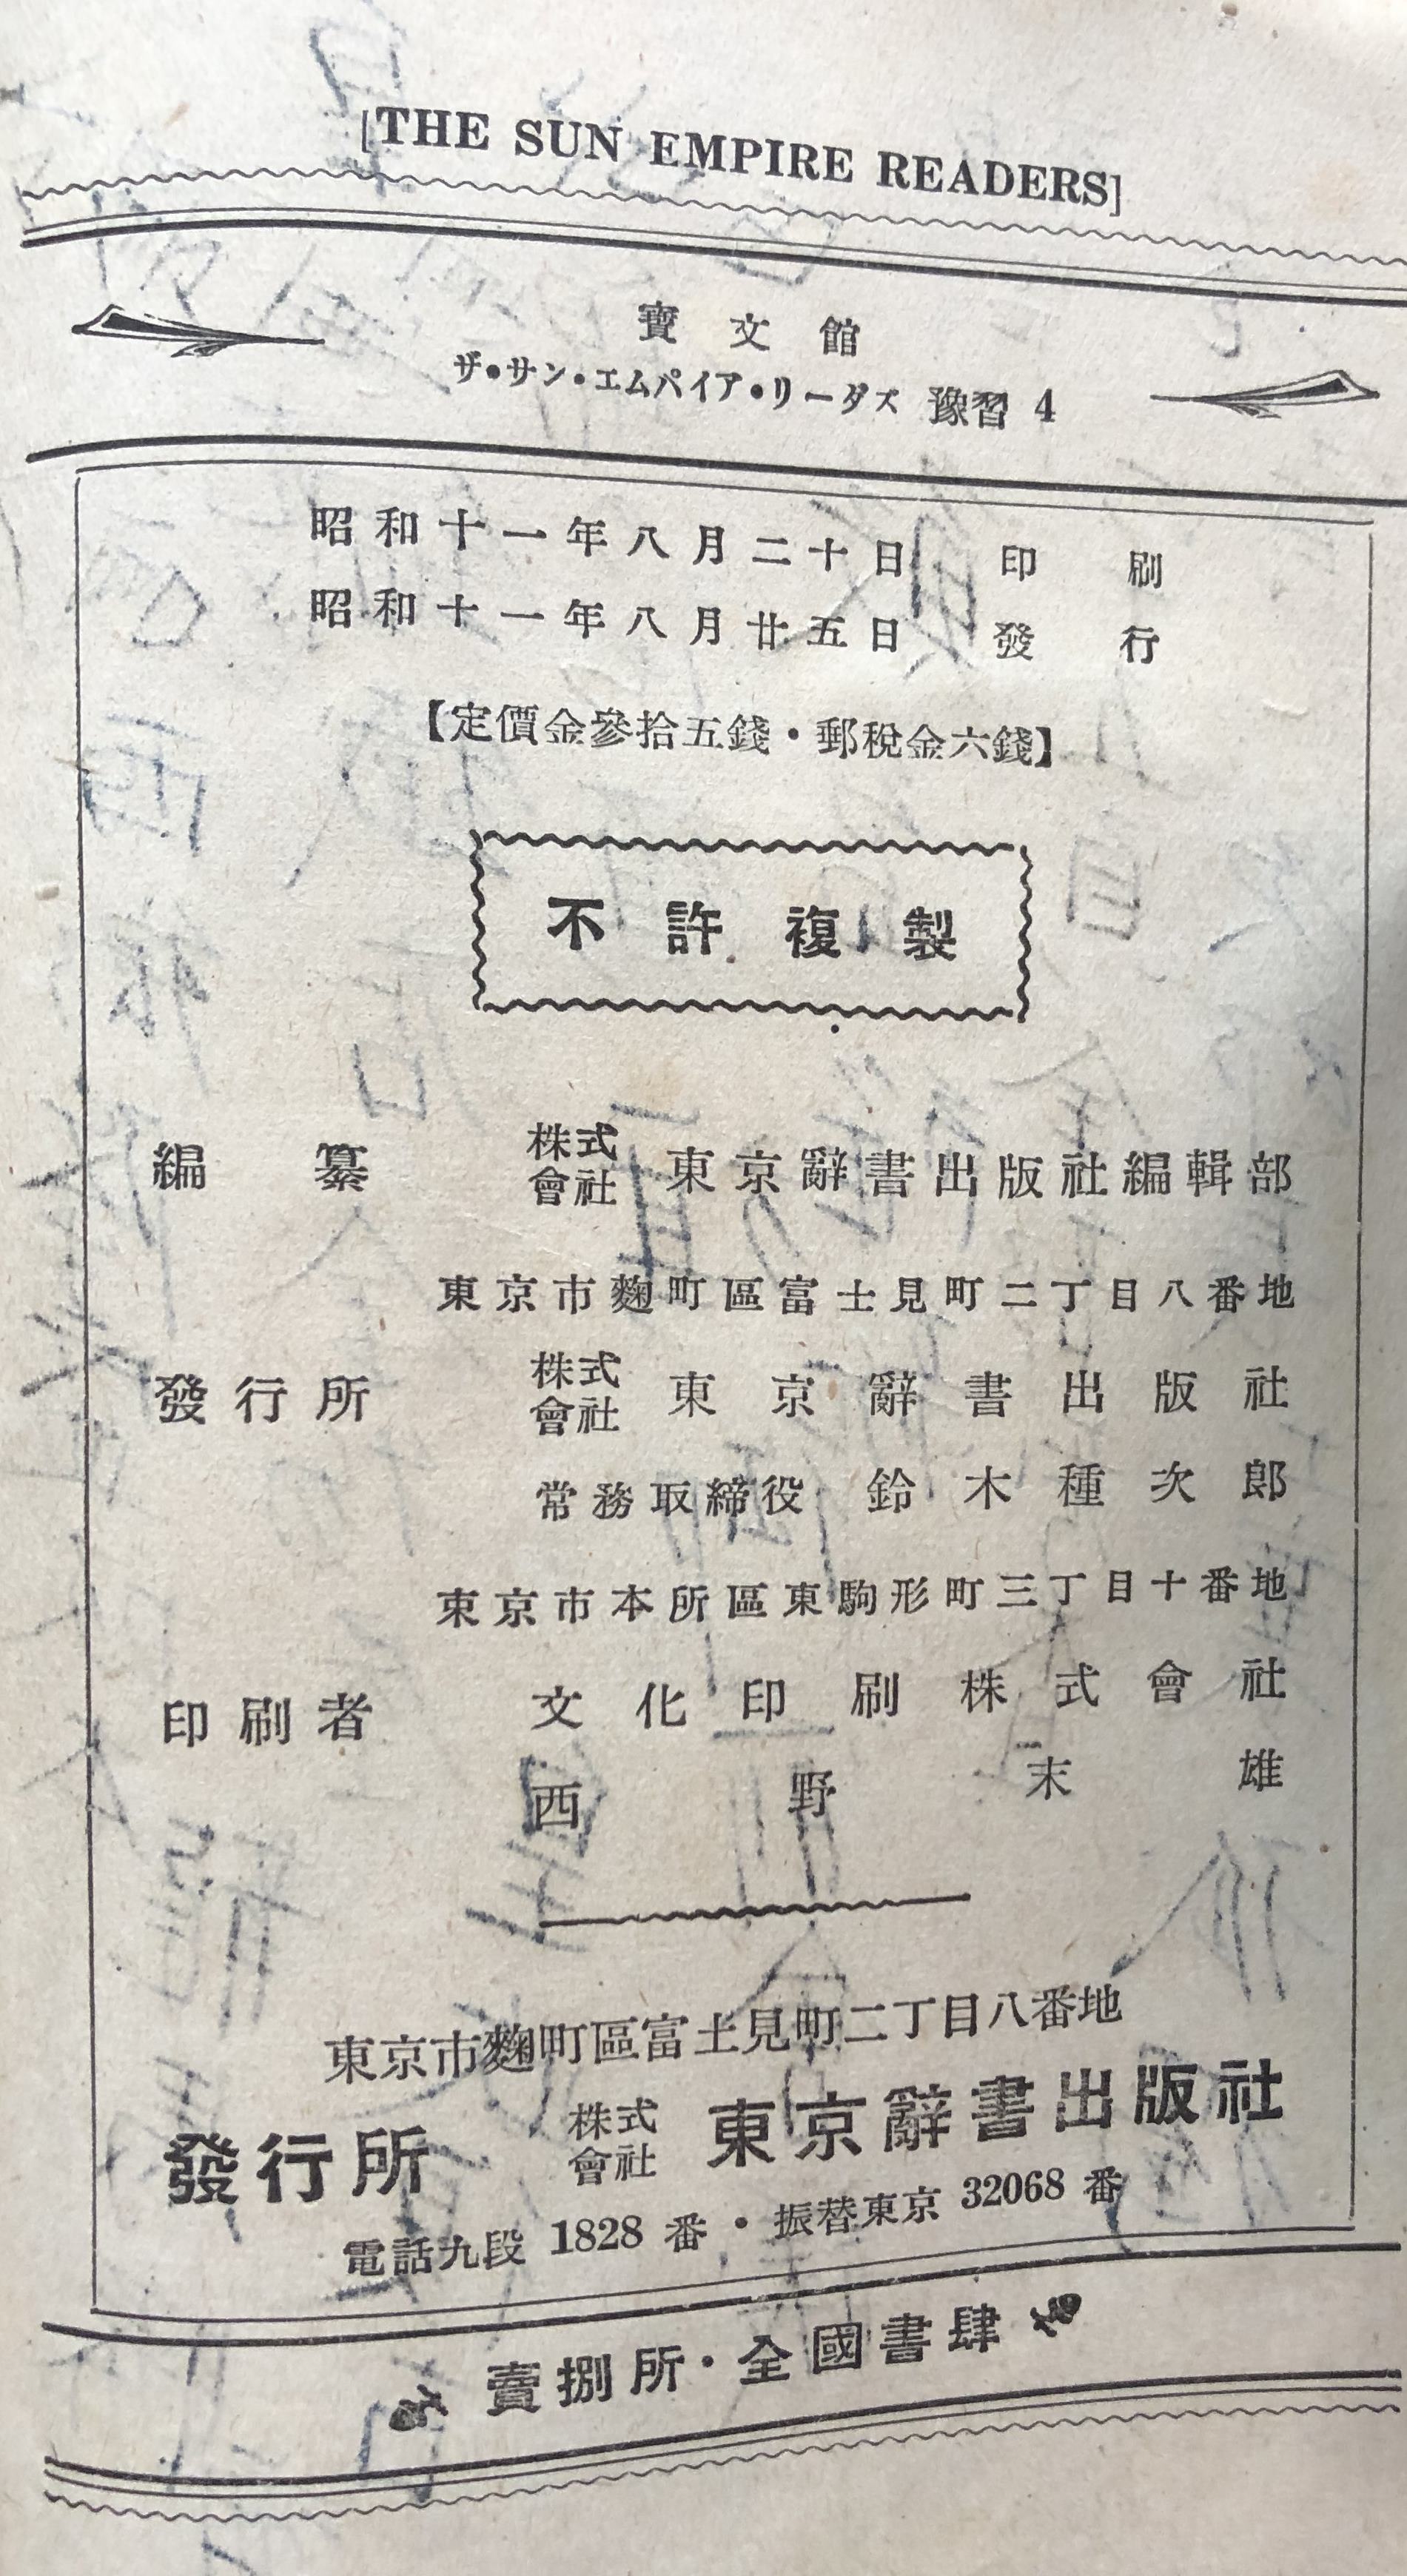 [THE SUN EMPIRE READERS]
寶文館
ザ・サン・エムパイア・リーダズ 豫習 4
昭和十一年八月二十日 印刷
昭和十一年八月廿五日 發行
【定價金參拾五錢・郵稅金六錢】
不許複製
編纂 株式會社 東京辭書出版社編輯部
東京市麴町區富士見町二丁目八番地
發行所 株式會社 東京辭書出版社
常務取締役 鈴木種次郎
東京市本所區東駒形町三丁目十番地
印刷者 文化印刷株式會社
西野末雄
東京市麴町區富士見町二丁目八番地
發行所 株式會社 東京辭書出版社
電話九段 1828 番・振替東京 32068 番
賣捌所・全國書肆